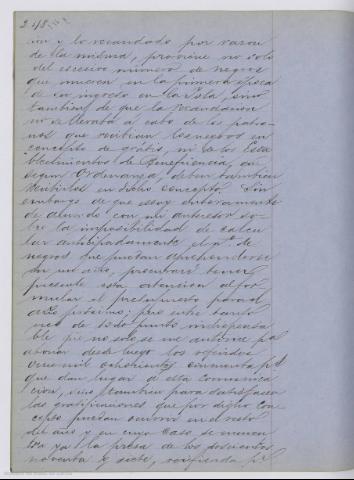 248
cion y lo recaudado por razon
de la misma, proviene no solo
del escesivo número de negros
que mueren en la primera época
de su ingreso en la Isla, sino
tambien de que la recaudacion
no se llevaba a cabo de los patro-
nos que recibian los negros en
concepto de grátis, ni de los Esta
blecimientos de Beneficencia, que
segun Ordenanza, deben tambien
recibirlos en dicho concepto. Sin
embargo de que estoy enteramente
de acuerdo con mi antecesor so-
bre la imposibilidad de calcu
lar anticipadamente el nº. de
negros que puedan aprehenderse
en un año, procuraré tener
presente esta atencion al for
mular el presupuesto para el
año próximo; pero entre tanto
es de todo punto indispensa
ble que no solo se me autorice pª
abonar desde luego los referidos
mil ochocientos cincuenta ps
que dan lugar a esta comunica
cion, sino tambien para satisfacer
las gratificaciones que por dicho con
cepto puedan ocurrir en el resto
del año y en cuyo caso se encuen
tra ya la presa de los doscientos
noventa y siete, verificada pr